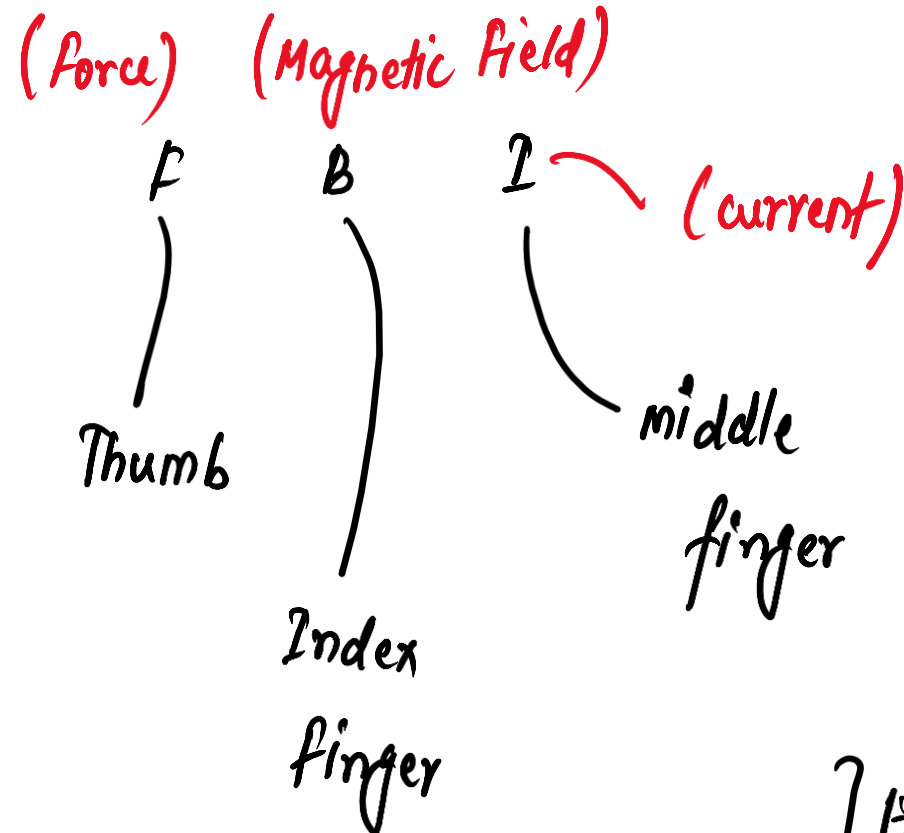 (Force) (Magnetic Field)
F B I (current)
Thumb
middle
finger
Index
finger